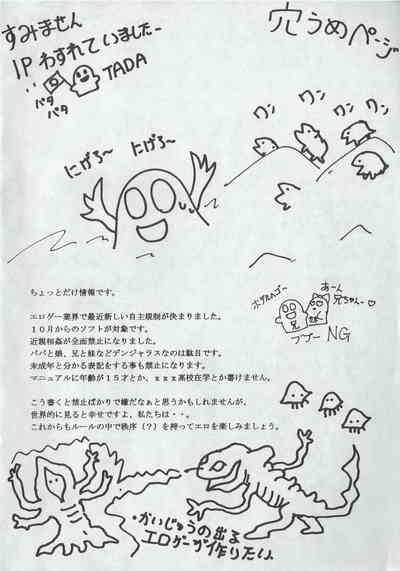 すみません
1P わすれていましたー
TADA
パタ
パタ
穴うめページ
ワン
ワン
ワン
ワン
にげろ〜
にげろ〜
ちょっとだけ情報です。
エロゲー業界で最近新しい自主規制が決まりました。
10月からのソフトが対象です。
近親相姦が全面禁止になりました。
パパと娘、兄と妹などデンジャラスなのは駄目です。
未成年と分かる表記をする事も禁止になります。
マニュアルに年齢が15才とか、xxx高校在学とか書けません。
あーん
兄ちゃーん
兄
NG
こう書くと禁止ばかりで嫌だなぁと思うかもしれませんが、
世界的に見ると幸せですよ、私たちは・・。
これからもルールの中で秩序（？）を持ってエロを楽しみましょう。
・かいじゅうの出る
エロゲーが作りたい